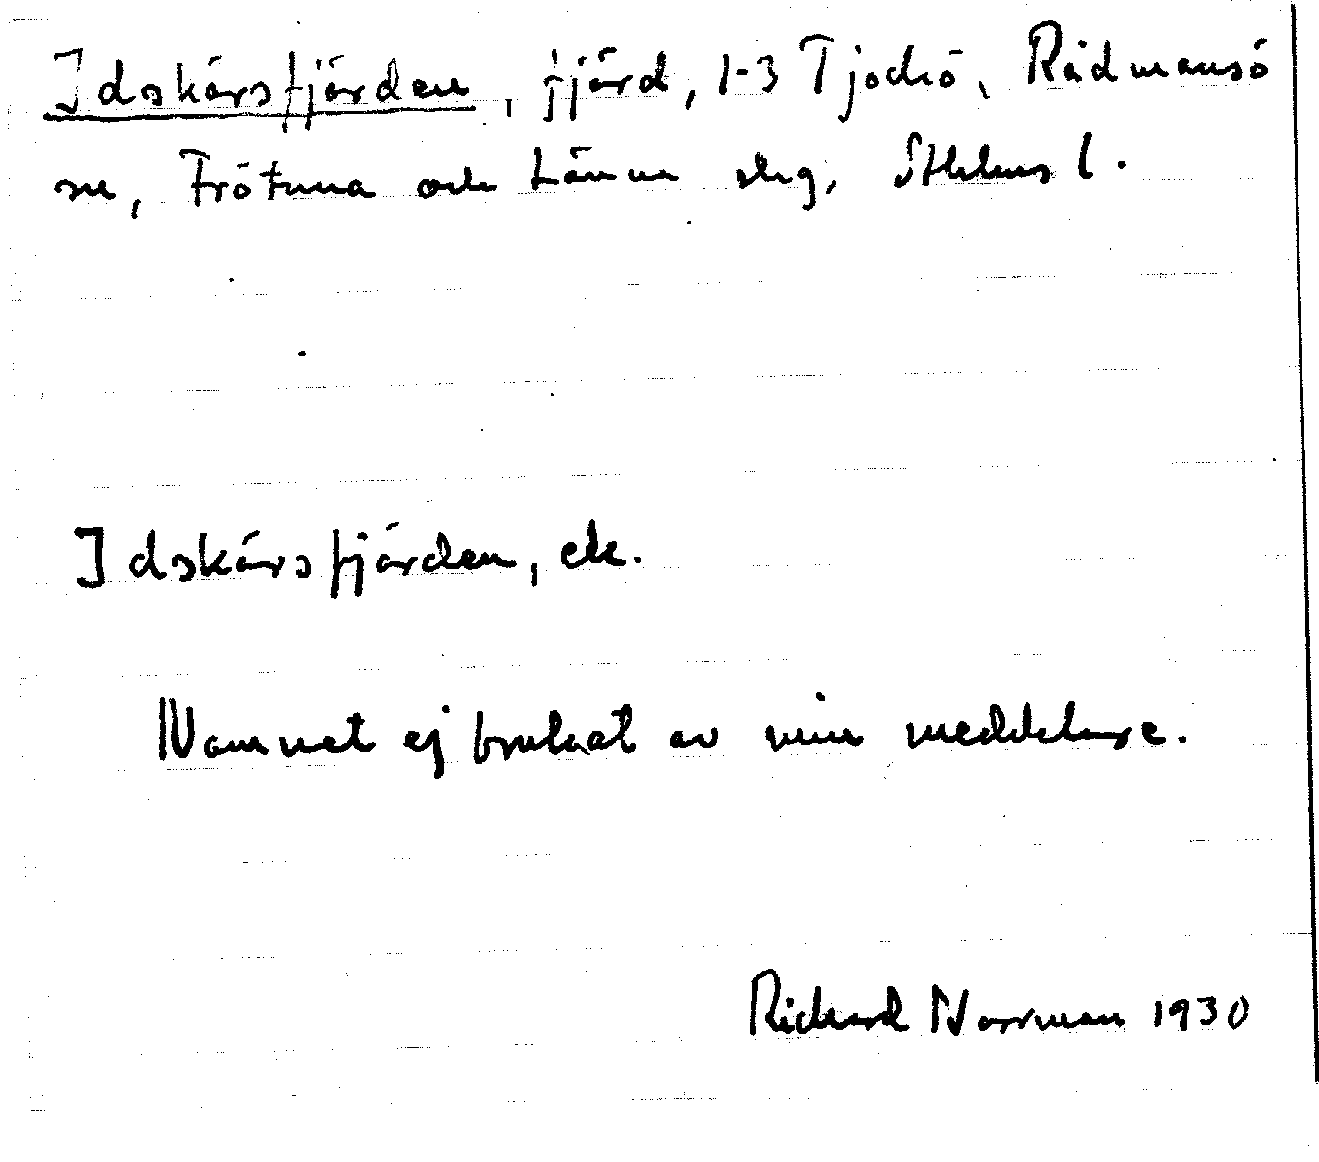 Idskärsfjärden, fjärd, 1-3 Tjockö, Rådmansö
sn, Frötuna och Länna slg, Sthlms l.
Idskärsfjärden, ek.
Namnet ej brukat av min meddelare.
Richard Norrman 1930